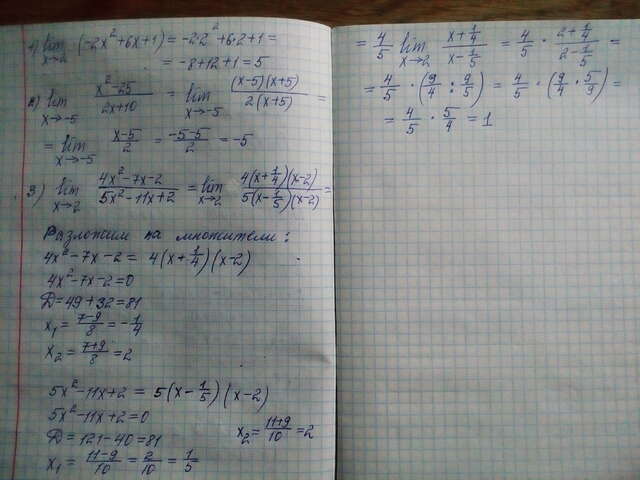 1) lim x→2 (-2x²+6x+1) = -2·2²+6·2+1 =
= -8+12+1 = 5
2) lim x→-5 (x²-25)/(2x+10) = lim x→-5 ((x-5)(x+5))/(2(x+5)) =
= lim x→-5 (x-5)/2 = (-5-5)/2 = -5
3) lim x→2 (4x²-7x-2)/(5x²-11x+2) = lim x→2 (4(x+1/4)(x-2))/(5(x-1/5)(x-2)) =
Разложим на множители:
4x²-7x-2 = 4(x+1/4)(x-2)
4x²-7x-2=0
D=49+32=81
x₁ = (7-9)/8 = -1/4
x₂ = (7+9)/8 = 2
5x²-11x+2 = 5(x-1/5)(x-2)
5x²-11x+2=0
D=121-40=81
x₂ = (11+9)/10 = 2
x₁ = (11-9)/10 = 2/10 = 1/5
= 4/5 lim x→2 (x+1/4)/(x-1/5) = 4/5 · (2+1/4)/(2-1/5) =
= 4/5 · (9/4 : 9/5) = 4/5 · (9/4 · 5/9) =
= 4/5 · 5/4 = 1